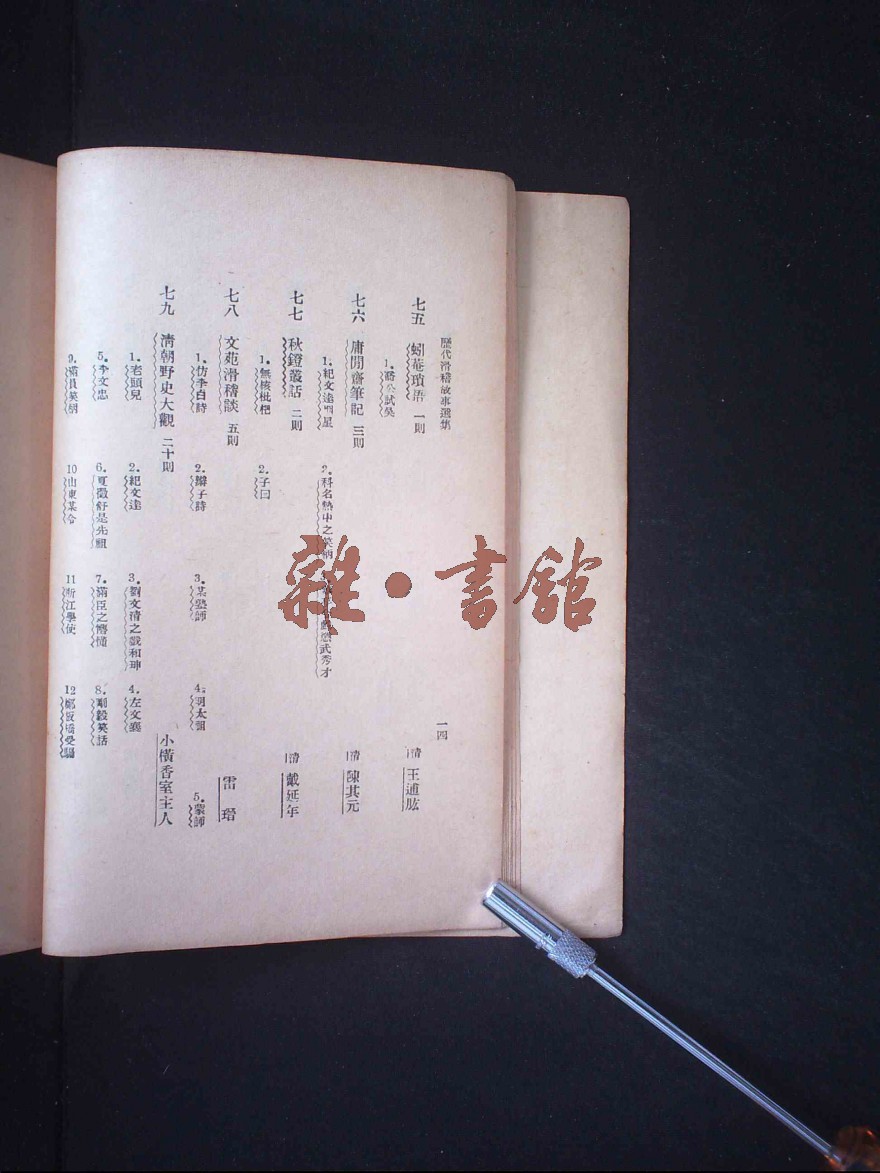 歷代滑稽故事選集 一四
七五 蚓菴瑣語 一則 清 王逋肱
1. 潞公試吳
七六 庸閒齋筆記 三則 清 陳其元
1. 紀文達 星 2. 科名熱中之笑柄 懲武秀才
七七 秋鐙叢話 二則 清 戴延年
1. 無核枇杷 2. 子曰
七八 文苑滑稽談 五則 雷瑨
1. 仿李白詩 2. 辮子詩 3. 某塾師 4. 羽太 5. 蒙師
七九 清朝野史大觀 二十則 小橫香室主人
1. 老頭兒 2. 紀文達 3. 劉文清之戲和珅 4. 左文襄
5. 李文忠 6. 夏徵舒是先祖 7. 滿臣之懵懂 8. 順毅笑話
9. 滿員笑柄 10 山東某令 11 浙江學使 12 鄭板橋受騙
雜·書館